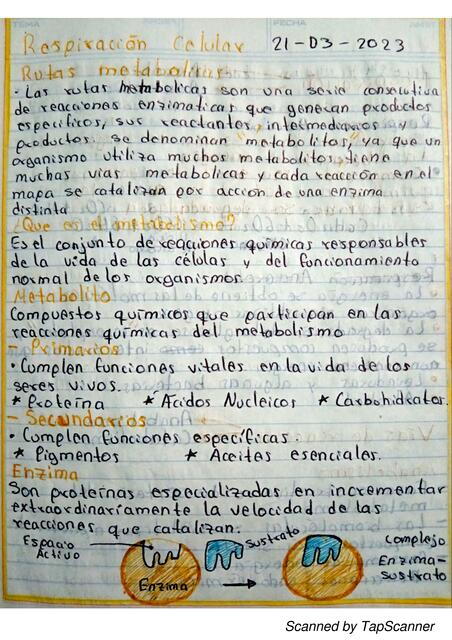 TEMA
FECHA
Respiración Celular 21-03-2023
Rutas metabolicas
· Las rutas metabolicas son una serie consecutiva
de reacciones enzimaticas que generan productos
especificos, sus reactantes, intermediarios y
productos se denominan "metabolitos", ya que un
organismo utiliza muchos metabolitos, tiene
muchas vias metabolicas y cada reacción en el
mapa se catalizan por acción de una enzima
distinta
¿Que es el metabolismo?
Es el conjunto de reacciones químicas responsables
de la vida de las células y del funcionamiento
normal de los organismos.
Metabolito
Compuestos químicos que participan en las
reacciones químicas del metabolismo
- Primarios
· Cumplen funciones vitales en la vida de los
seres vivos.
* Proteína * Acidos Nucleicos * Carbohidratos.
- Secundarios
· Cumplen funciones específicas.
* Pigmentos * Aceites esenciales.
Enzima
Son proteínas especializadas en incrementar
extraordinariamente la velocidad de las
reacciones que catalizan.
Espacio
Activo
Sustrato
Enzima
Complejo
Enzima-
sustrato
Scanned by TapScanner